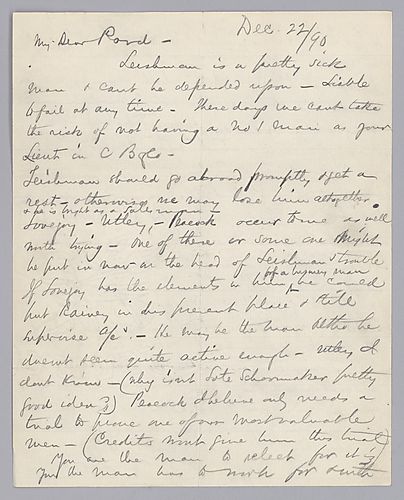 Dec. 22/90
My Dear Pard —
Leishman is a pretty sick
man & can't be depended upon — Liable
to fail at any time — These days we cant take
the risk of not having a No 1 man as your
Lieut in C B & Co —
Leishman should go abroad promptly & get a
rest — otherwise we may lose him altogether.
& he is bright as a
Lovejoy — Utley, — Peacock occur to me as well
worth trying — One of these or some one might
be put in now as the head of Leishman's
of a higher man
If Lovejoy has the elements in him, we could
put Rainey in his present place & still
supervise a/cs. — He may be the man altho he
doesnt seem quite active enough — Utley I
dont know — (Why isn't Schoonmaker pretty
good idea?) Peacock I believe only needs a
trial to prove one of our most valuable
men — (Credits wont give him this trial)
You are the man to select for it is
you the man has to work for & with